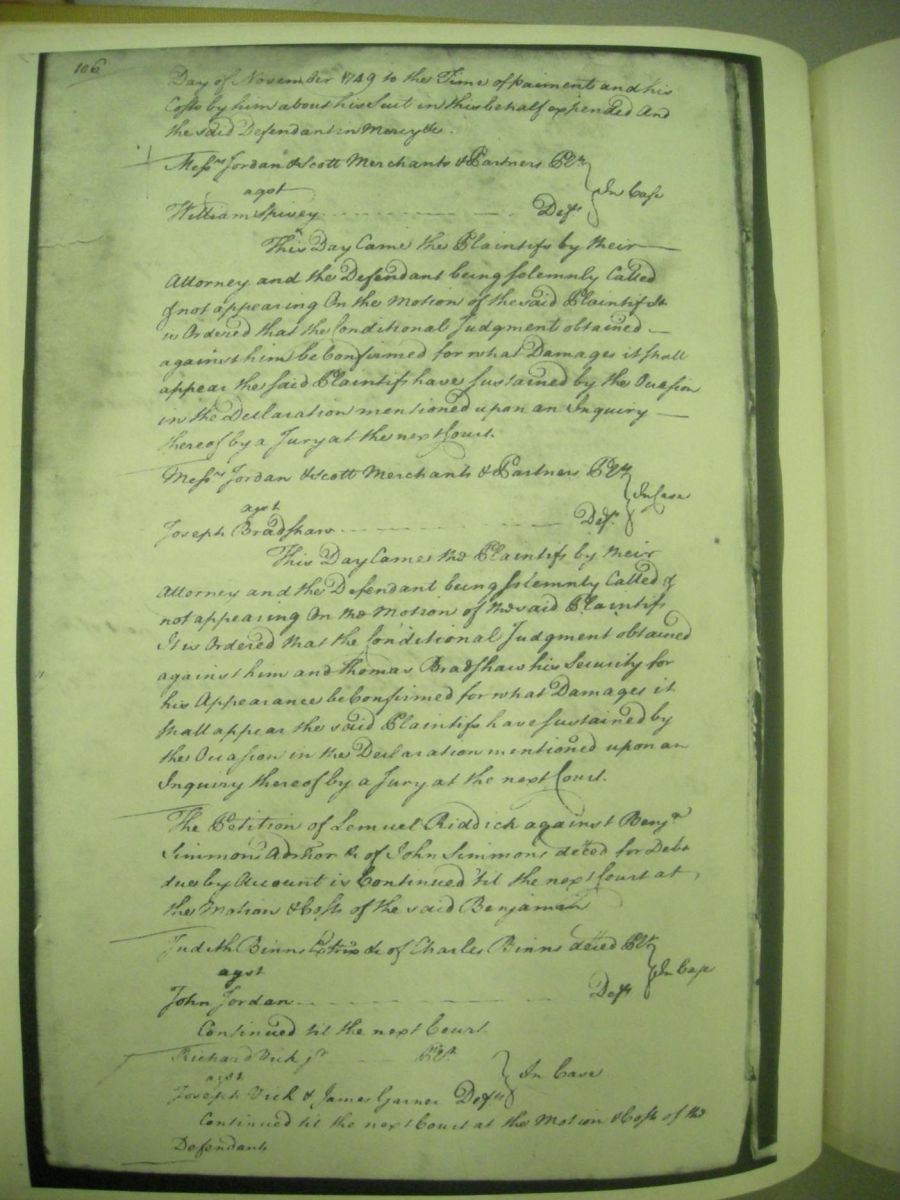 106
Day of November 1749 to the Time of paiment and his
Costs by him about his Suit in this behalf expended And
the said Defendant in Mercy &c.
Messrs Jordan & Scott Merchants & Partners Plts
agst
William Spivey Deft
In Case
This Day Came the Plaintifs by their
Attorney and the Defendant being solemnly Called
& not appearing On the Motion of the said Plaintifs It
is Ordered that the Conditional Judgment obtained
against him be Confirmed for what Damages it shall
appear the said Plaintifs have sustained by the Ocasion
in the Declaration mentioned upon an Inquiry
thereof by a Jury at the next Court.
Messrs Jordan & Scott Merchants & Partners Plts
agst
Joseph Bradshaw Deft
In Case
This Day Came the Plaintifs by their
Attorney and the Defendant being solemnly Called &
not appearing On the Motion of the said Plaintifs
It is Ordered that the Conditional Judgment obtained
against him and Thomas Bradshaw his Security for
his Appearance be Confirmed for what Damages it
shall appear the said Plaintifs have sustained by
the Ocasion in the Declaration mentioned upon an
Inquiry thereof by a Jury at the next Court.
The Petition of Lemuel Riddick against Benja
Simmons &c of John Simmons deced for Debt
due by Account is Continued 'til the next Court at
the Motion & Costs of the said Benjamin
Judith Binns Extrix &c of Charles Binns deced Plt
agst
John Jordan Deft
In Case
Continued til the next Court
Richard Vick jr Plt
agst
Joseph Vick & James Garner Defts
In Case
Continued til the next Court at the Motion & Costs of the
Defendants